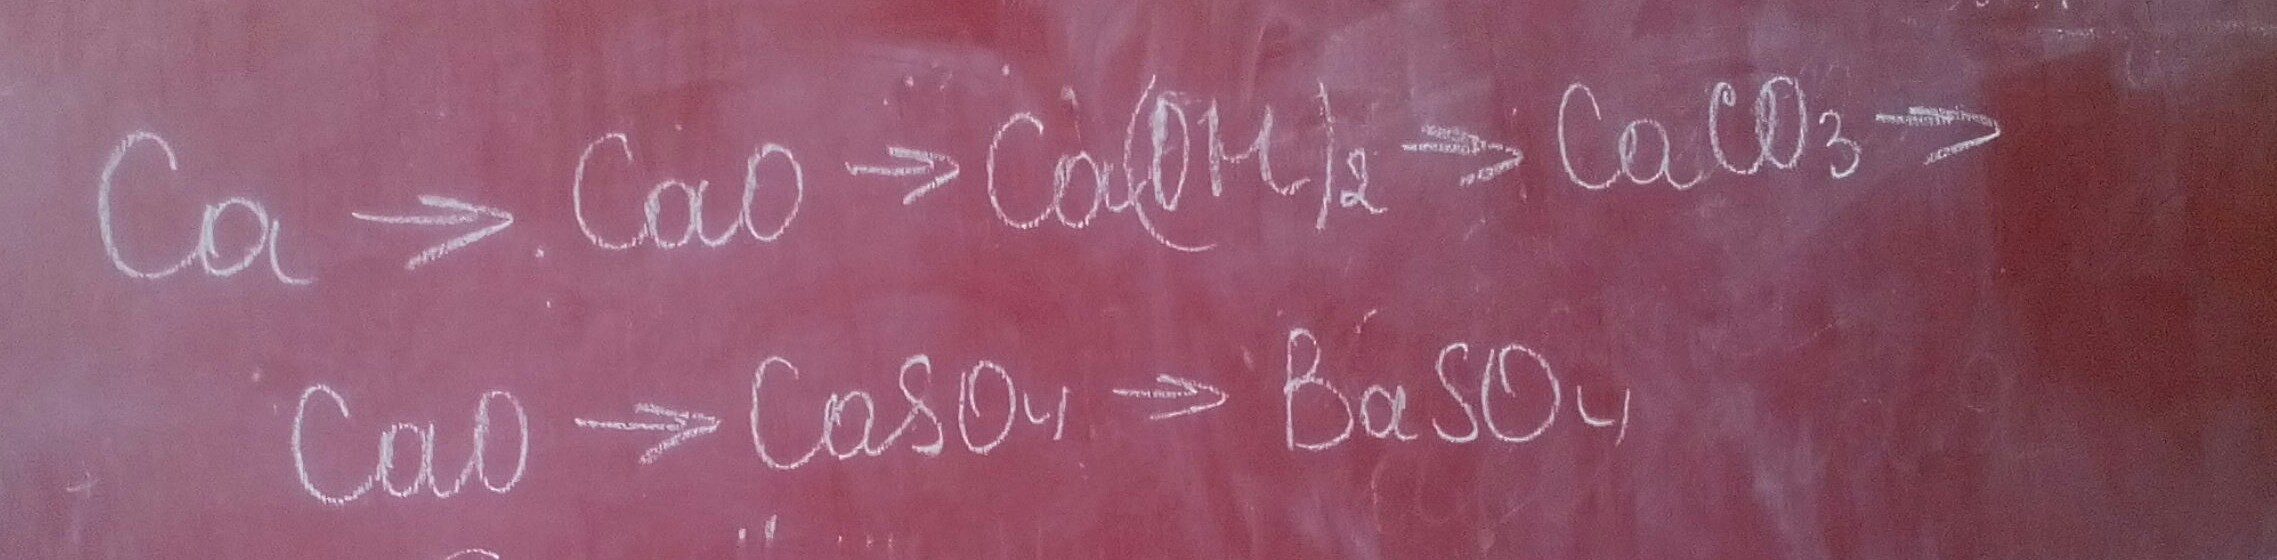 Ca → CaO → Ca(OH)₂ → CaCO₃ →
CaO → CaSO₄ → BaSO₄